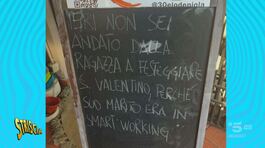 @30elodenigla
IERI NON SEI
ANDATO DALLA
RAGAZZA A FESTEGGIARE
S. VALENTINO, PERCHÉ
SUO MARITO ERA IN
SMART WORKING
STRISCIA
5